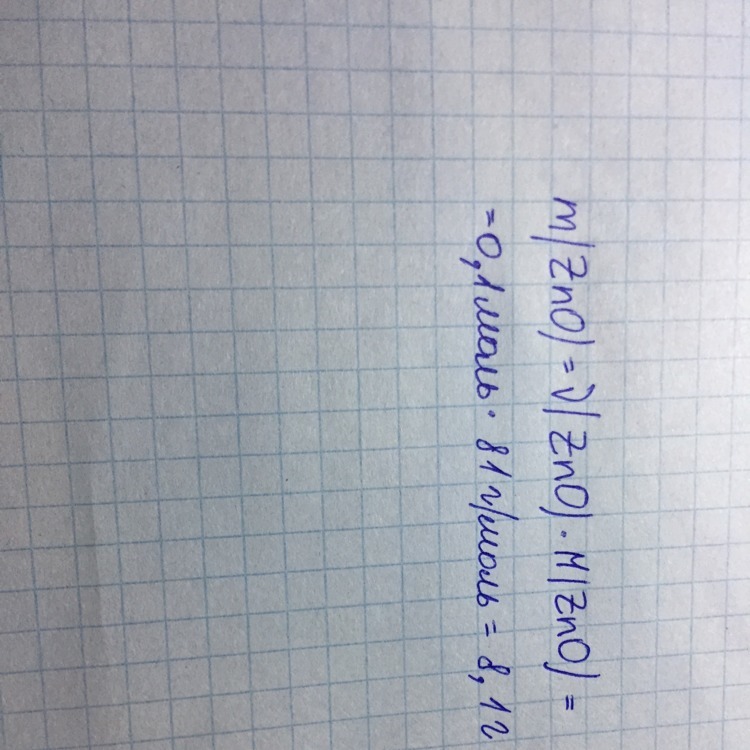 m(ZnO) = ν(ZnO) · M(ZnO) =
= 0,1 моль · 81 г/моль = 8,1 г